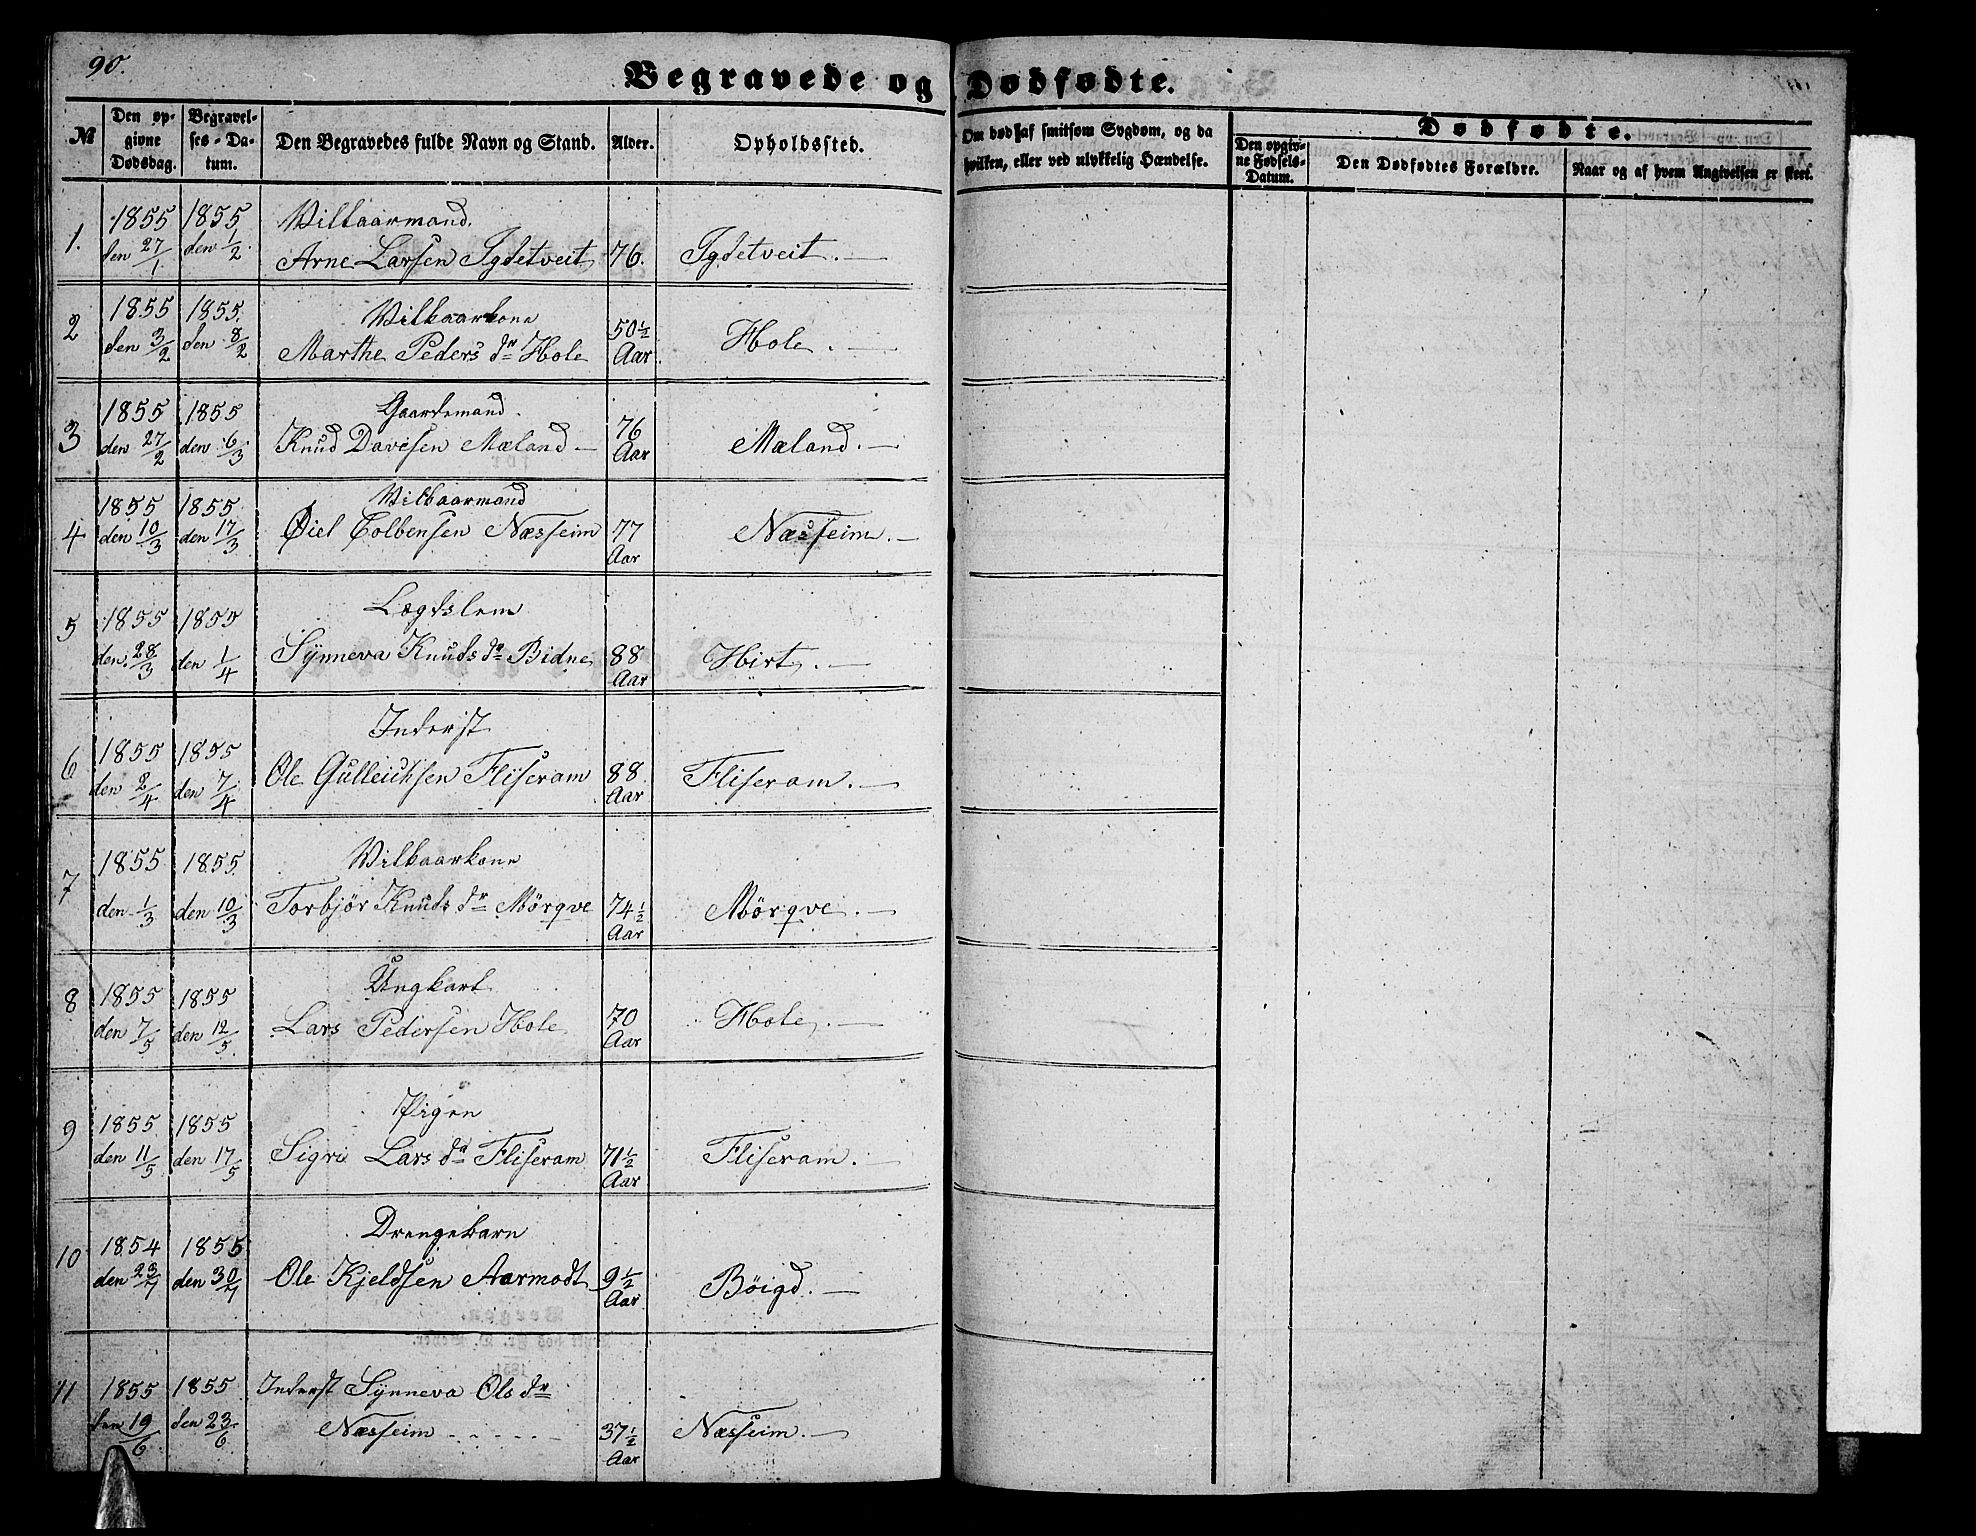 90.
Begravede og Dødfødte.
№
Den op-
givne
Dødsdag.
Begravel-
ses-Da-
tum.
Den Begravedes fulde Navn og Stand.
Alder.
Opholdssted.
Om død af smitsom Sygdom, og da
hvilken, eller ved ulykkelig Hændelse.
Dødfødte.
Den opgiv-
ne Fødsels-
Datum.
Den Dødfødtes Forældre.
Naar og af hvem Angivelsen er skeet.
1. 1855 den 27/1 1855 den 1/2 Vilkaarmand
Arne Larsen Igdetveit 76. Igdetveit.
2 1855 den 3/2 1855 den 8/2 Vilkaarkone
Marthe Peders dr Hole 50½ Aar Hole.
3 1855 den 27/2 1855 den 6/3 Gaardmand
Knud Davesen Mæland 76 Aar Mæland.
4 1855 den 10/3 1855 den 17/3 Vilkaarmand
Øiel Colbensen Næsseim 77 Aar Næsseim.
5 1855 den 28/3 1855 den 1/4 Lægdslem
Synneva Knuds dr Bidne 88 Aar Hirt.
6 1855 den 2/4 1855 den 7/4 Inderst
Ole Gulleichsen Fliseram 88 Aar Fliseram.
7 1855 den 1/3 1855 den 10/3 Vilkaarkone
Torbjør Knuds dr Mørqve 74½ Aar Mørqve.
8 1855 den 7/5 1855 den 12/5 Ungkarl
Lars Pedersen Hole 70 Aar Hole.
9 1855 den 11/5 1855 den 17/5 Pigen
Sigri Lars dr Fliseram 71½ Aar Fliseram.
10 1854 den 23/7 1855 den 30/7 Drengebarn
Ole Kjeldsen Aarmodt 9½ Aar Bøigd.
11 1855 den 19/6 1855 den 23/6 Inderst Synneva Ols dr
Næsseim 37½ Aar Næsseim.